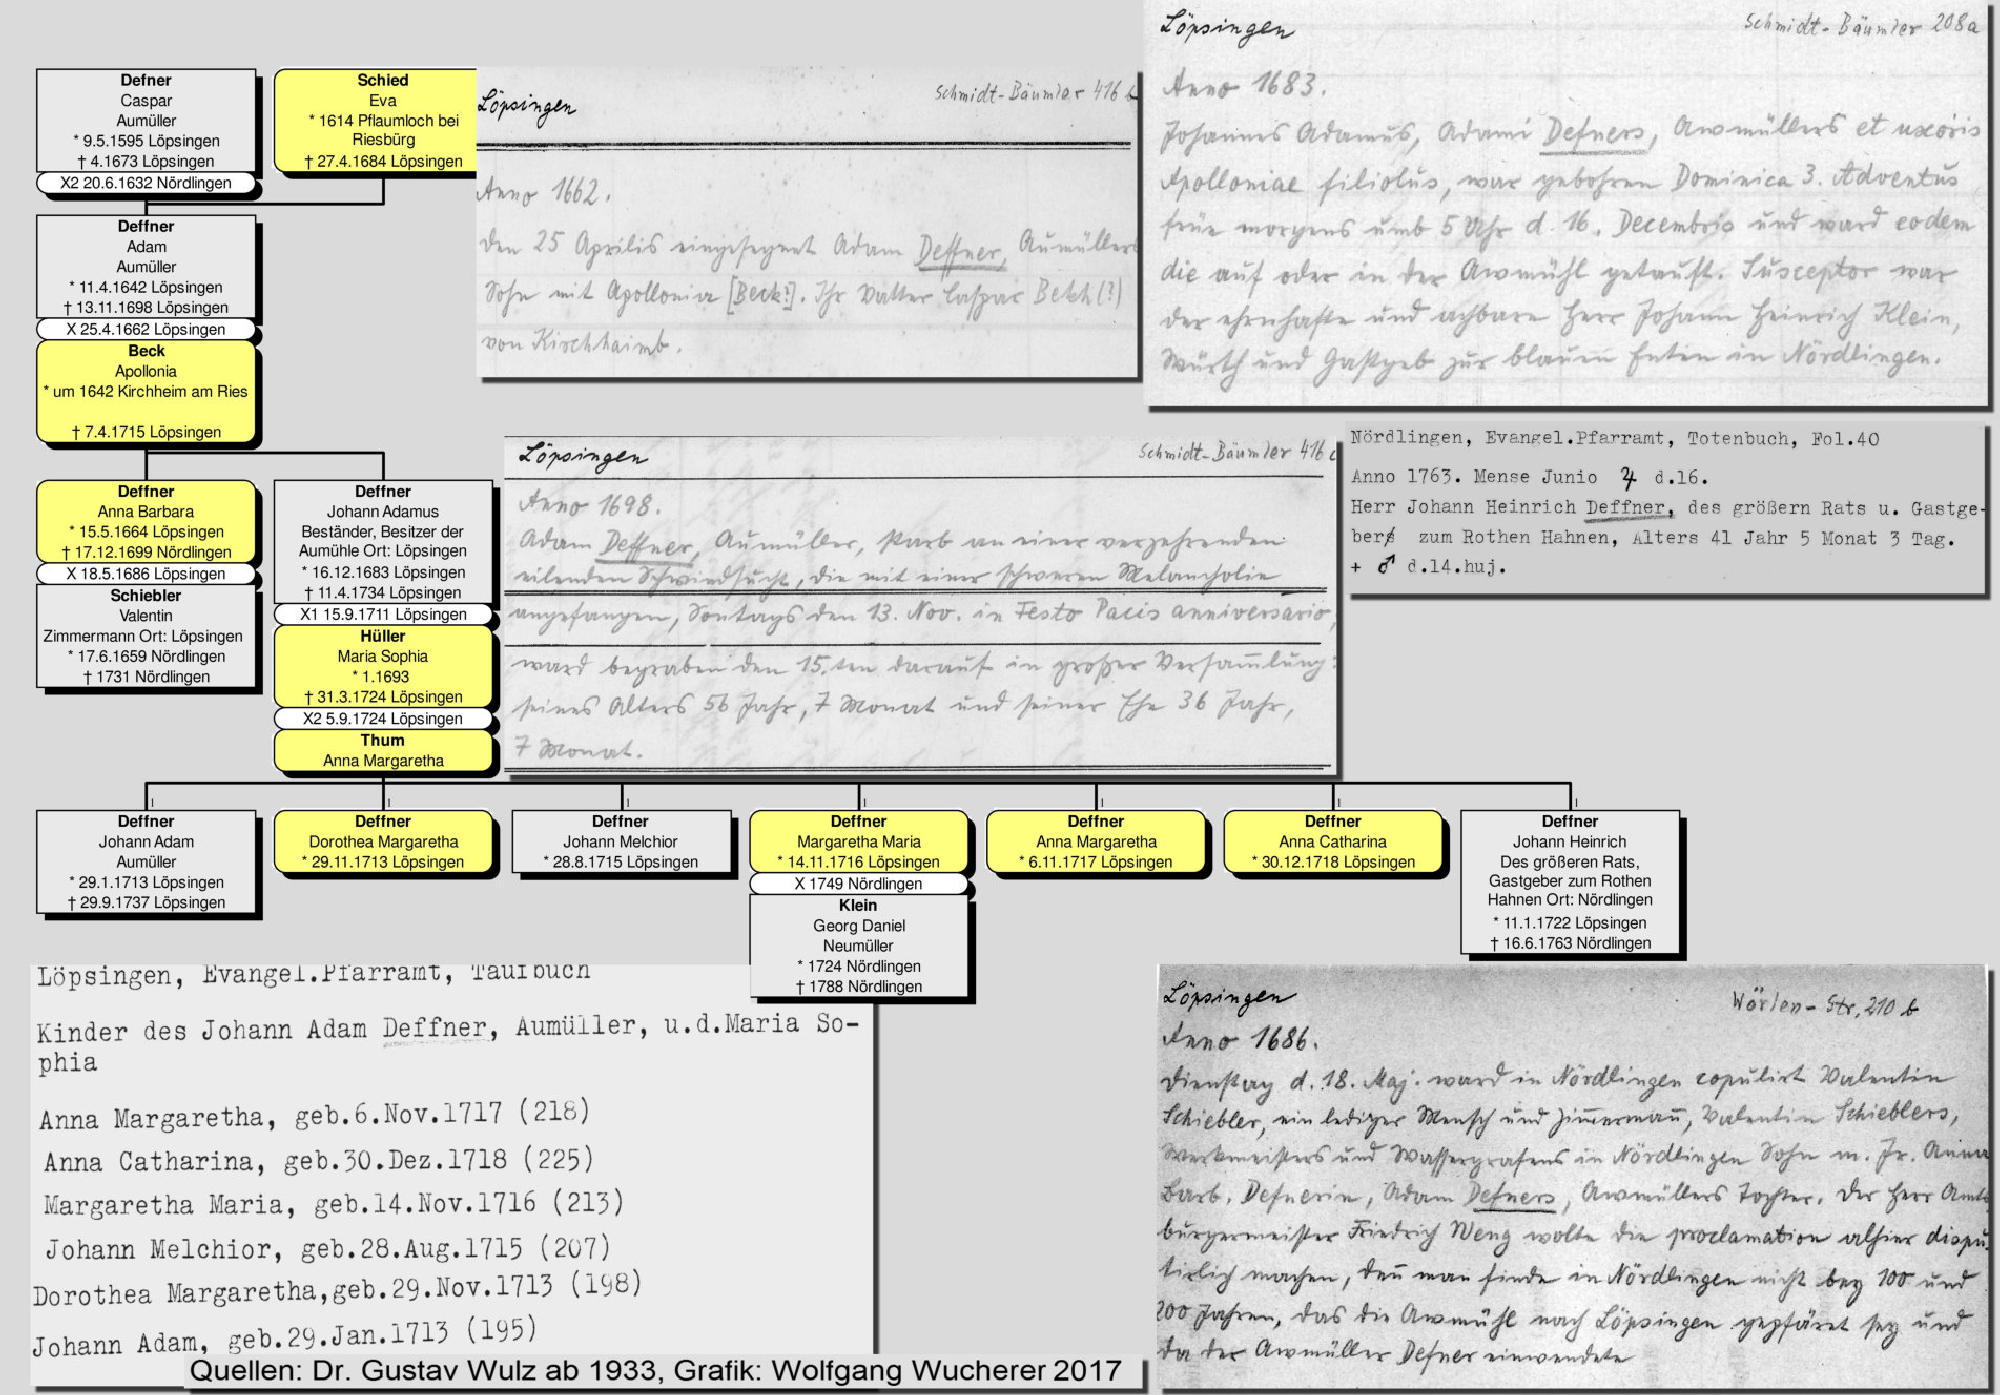 Defner
Caspar
Aumüller
* 9.5.1595 Löpsingen
† 4.1673 Löpsingen
X2 20.6.1632 Nördlingen
Schied
Eva
* 1614 Pflaumloch bei
Riesbürg
† 27.4.1684 Löpsingen
Deffner
Adam
Aumüller
* 11.4.1642 Löpsingen
† 13.11.1698 Löpsingen
X 25.4.1662 Löpsingen
Beck
Apollonia
* um 1642 Kirchheim am Ries
† 7.4.1715 Löpsingen
Deffner
Anna Barbara
* 15.5.1664 Löpsingen
† 17.12.1699 Nördlingen
X 18.5.1686 Löpsingen
Schiebler
Valentin
Zimmermann Ort: Löpsingen
* 17.6.1659 Nördlingen
† 1731 Nördlingen
Deffner
Johann Adamus
Beständer, Besitzer der
Aumühle Ort: Löpsingen
* 16.12.1683 Löpsingen
† 11.4.1734 Löpsingen
X1 15.9.1711 Löpsingen
Hüller
Maria Sophia
* 1.1693
† 31.3.1724 Löpsingen
X2 5.9.1724 Löpsingen
Thum
Anna Margaretha
Löpsingen
Schmidt-Bäumler 416 b
Anno 1662.
Den 25 Aprilis eingesegnet Adam Deffner, Aumüllers
Sohn mit Apollonia [Beck?]. Ihr Vatter Caspar Betch(?)
von Kirchhaimb.
Löpsingen
Schmidt-Bäumler 208a
Anno 1683.
Johannes Adamus, Adami Defners, Awmüllers et uxoris
Apolloniae filiolus, war gebohren Dominica 3. Adventus
früe morgens umb 5 Uhr d. 16. Decembris und ward eodem
die auf oder in der Awmühl getauft. Susceptor war
der ehrnhafte und achbare Herr Johann Heinrich Klein,
Würth und Gastgeb zur blauen Enten in Nördlingen.
Löpsingen
Schmidt-Bäumler 416 c
Anno 1698.
Adam Deffner, Aumüller, starb an einer verzehrenden
eilenden Schwindsucht, die mit einer schweren Melancholie
angefangen, Sontags den 13. Nov. in Festo Pacis anniversario,
ward begraben den 15.ten darauf in großer Versammlung:
seines Alters 56 Jahr, 7 Monat und seiner Ehe 36 Jahr,
7 Monat.
Nördlingen, Evangel.Pfarramt, Totenbuch, Fol.40
Anno 1763. Mense Junio ♃ d.16.
Herr Johann Heinrich Deffner, des größern Rats u. Gastge-
ber zum Rothen Hahnen, Alters 41 Jahr 5 Monat 3 Tag.
+ ♂ d.14.huj.
Deffner
Johann Adam
Aumüller
* 29.1.1713 Löpsingen
† 29.9.1737 Löpsingen
Deffner
Dorothea Margaretha
* 29.11.1713 Löpsingen
Deffner
Johann Melchior
* 28.8.1715 Löpsingen
Deffner
Margaretha Maria
* 14.11.1716 Löpsingen
X 1749 Nördlingen
Klein
Georg Daniel
Neumüller
* 1724 Nördlingen
† 1788 Nördlingen
Deffner
Anna Margaretha
* 6.11.1717 Löpsingen
Deffner
Anna Catharina
* 30.12.1718 Löpsingen
Deffner
Johann Heinrich
Des größeren Rats,
Gastgeber zum Rothen
Hahnen Ort: Nördlingen
* 11.1.1722 Löpsingen
† 16.6.1763 Nördlingen
Löpsingen, Evangel.Pfarramt, Taufbuch
Kinder des Johann Adam Deffner, Aumüller, u.d.Maria So-
phia
Anna Margaretha, geb.6.Nov.1717 (218)
Anna Catharina, geb.30.Dez.1718 (225)
Margaretha Maria, geb.14.Nov.1716 (213)
Johann Melchior, geb.28.Aug.1715 (207)
Dorothea Margaretha,geb.29.Nov.1713 (198)
Johann Adam, geb.29.Jan.1713 (195)
Löpsingen
Wörlen-Str. 210 b
Anno 1686.
Dienstag d. 18. Maj. ward in Nördlingen copulirt Valentin
Schiebler, ein lediger Mensch und Zimermañ, Valentin Schieblers,
Werkmeisters und Wassergrafens in Nördlingen Sohn m. Jr. Anna
Barb. Defnerin, Adam Defners, Awmüllers Tochter. Der Herr Amts
bürgermeister Friedrich Weng wolte die proclamation alhier dispu-
tirlich machen, den man finde in Nördlingen nicht bey 100 und
200 Jahren, das die Awmühl nach Löpsingen gepfäret sey und
da der Awmüller Defner einwendete
Quellen: Dr. Gustav Wulz ab 1933, Grafik: Wolfgang Wucherer 2017